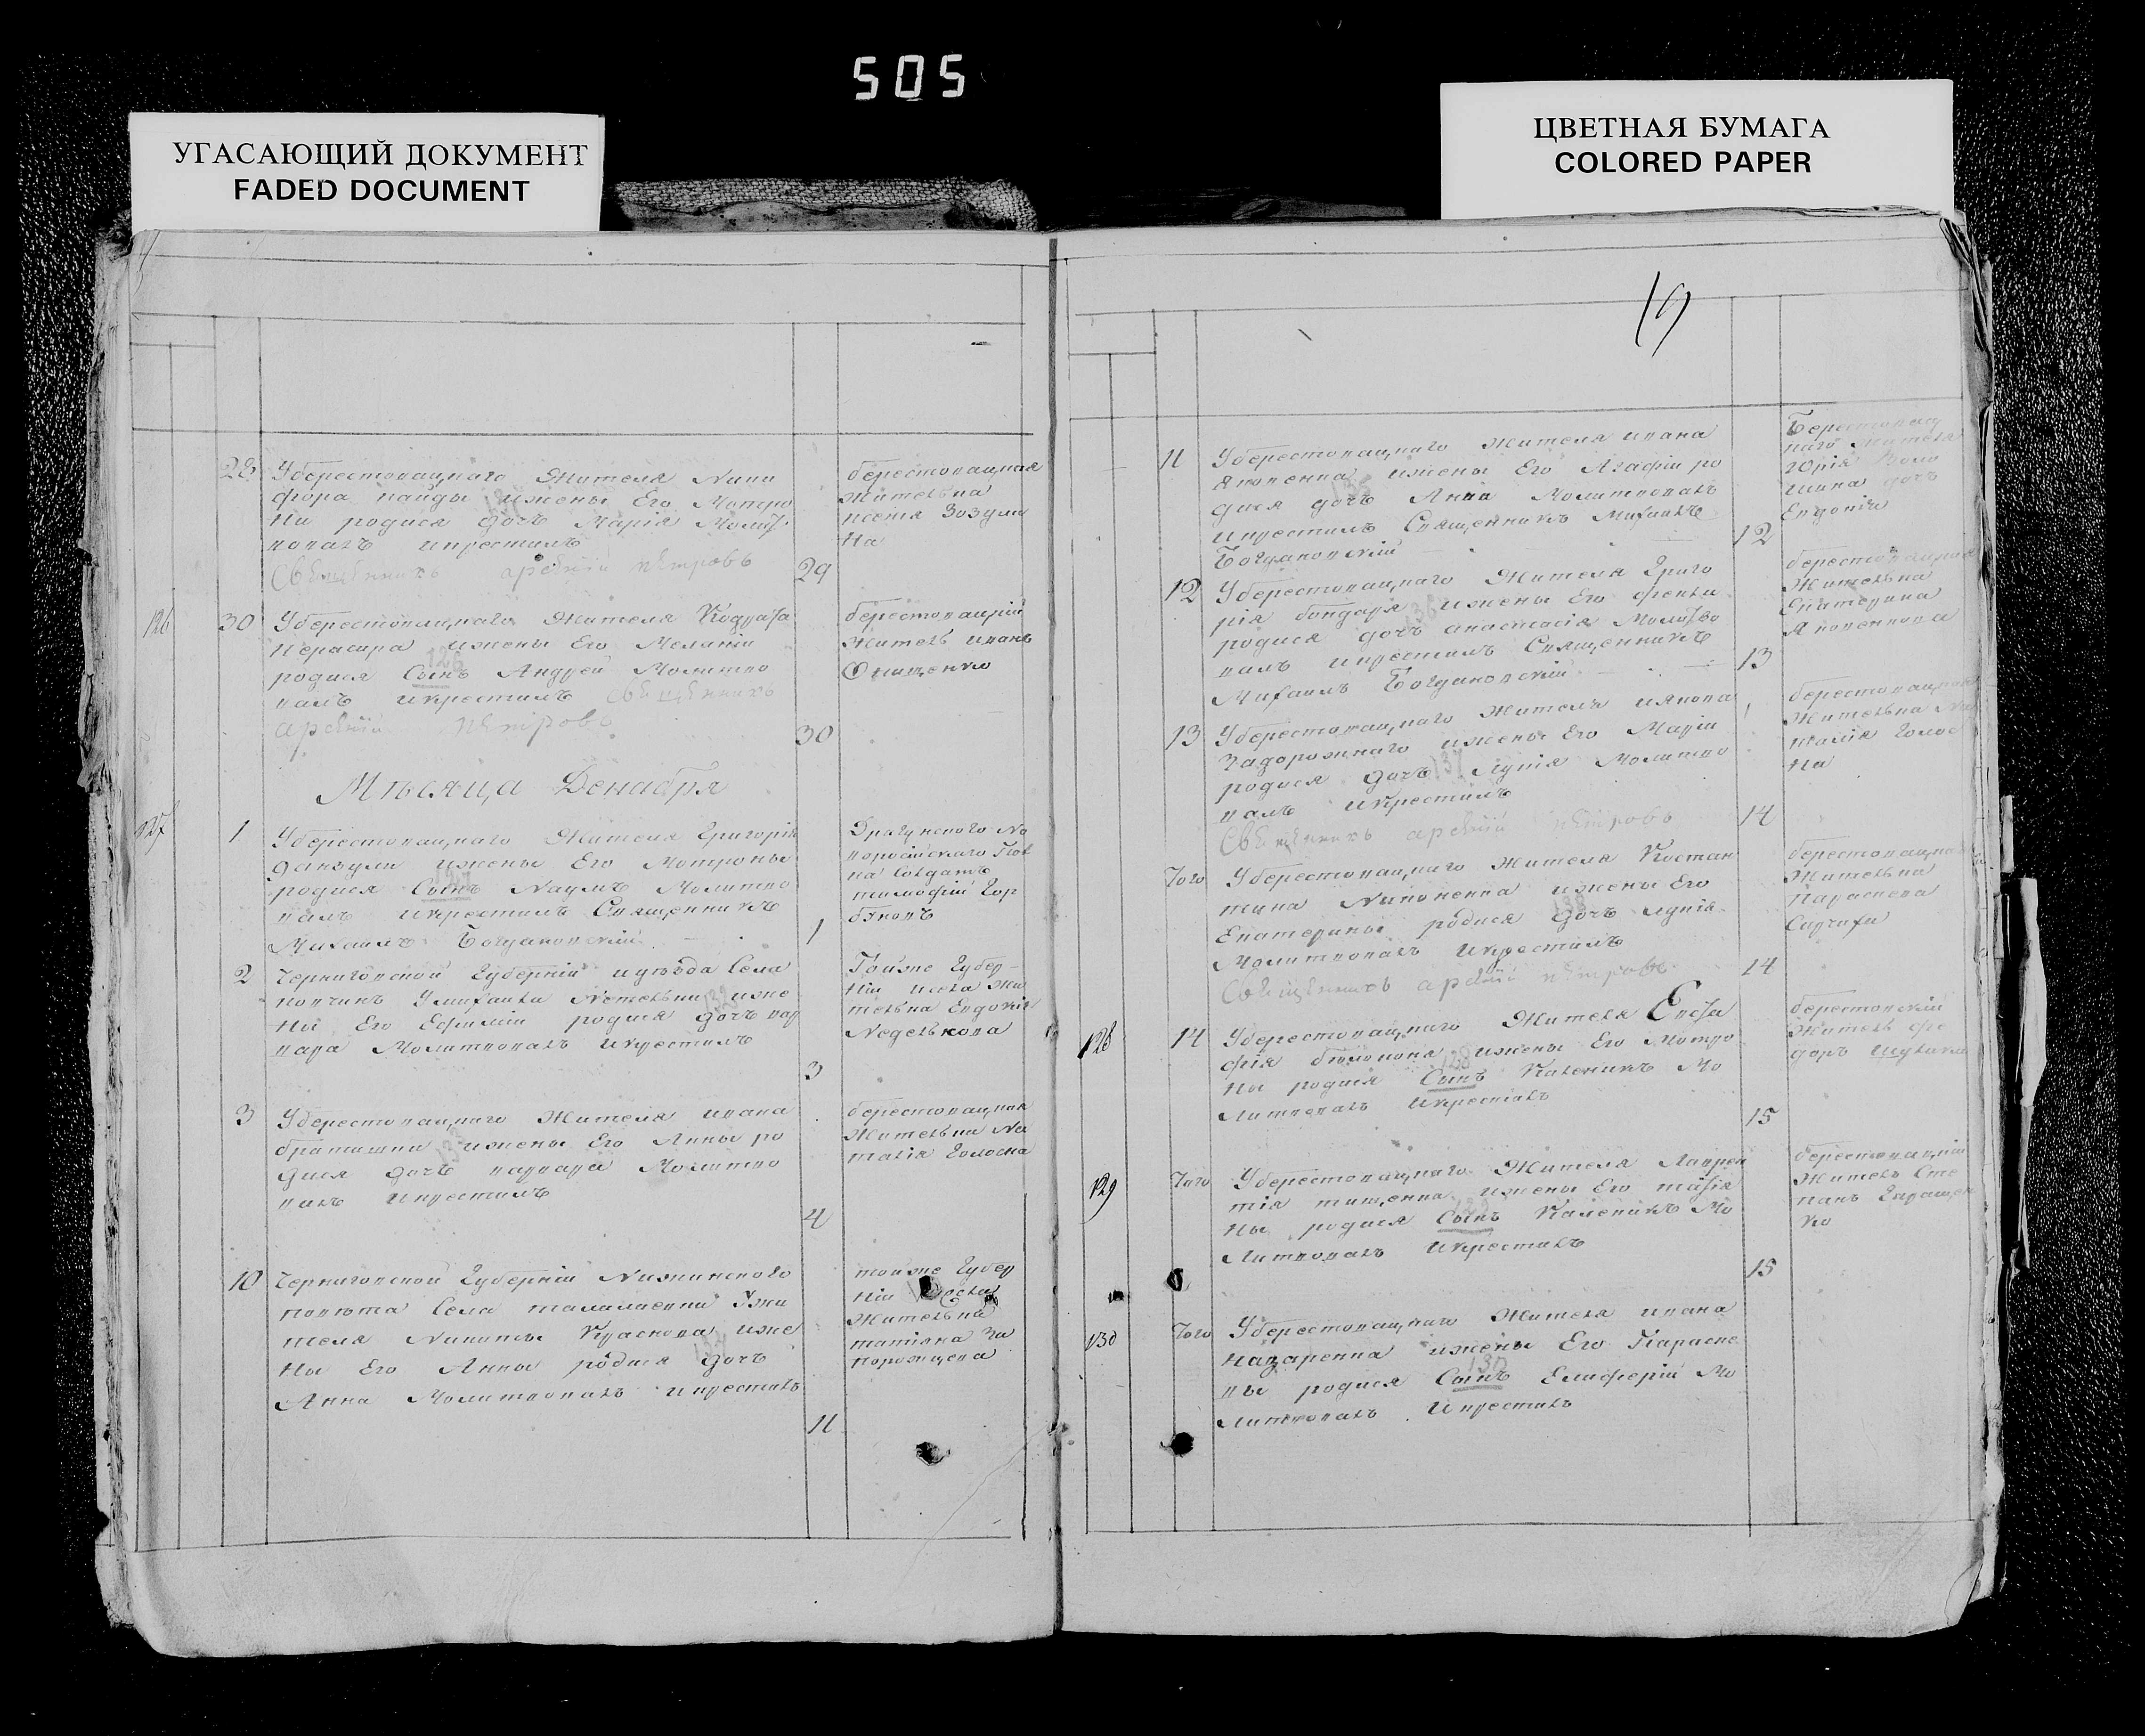 505
УГАСАЮЩИЙ ДОКУМЕНТ
FADED DOCUMENT
ЦВЕТНАЯ БУМАГА
COLORED PAPER
28 Убѣрестовацкаго Жителя Ники
фора найды ижены Его Мотро
ни родися дочь Марія
вовалъ икрестилъ
Свѣщенникъ арсѣній пѣтровъ
29
берестовацкая
Жителька
Зозули
на
126 30 Уберестовацкаго Жителя
ижены Его Меланіи
126
родися Сынъ Андрей Молитво
валъ икрестилъ Свѣщѣнникъ
арсѣній пѣтровъ
30
берестовацкій
Житель иванъ
Онищенко
Мѣсяца Декабря
127 1 Уберестовацкаго Жителя Григорія
ижены Его Мотроны
родися Сынъ Наумъ Молитво
валъ икрестилъ Священникъ
Михаилъ Богдановскій
1
Драгунского
полка Солдатъ
тимофій Гор
буновъ
2 Черниговской Губерніи иуѣзда Села
132
ны Его Ефиміи родися дочь вар
вара Молитвовалъ икрестилъ
3
Тойже Губер
ніи
телька Евдокія
Неделькова
3 Уберестовацкаго Жителя ивана
браташки ижены Его Анны ро
133
дися дочь варвара Молитво
валъ икрестилъ
4
берестовацкая
Жителька На
талія Голосна
10 Черниговской Губерніи Нижинского
повѣта Села талалаевки Ужи
теля Никиты Краскова иже
134
ны Его Анны родися дочь
Анна Молитвовалъ икрестилъ
11
тойже Губер
ніи
Жителька
татіяна За
порожцева
19
11 Уберестовацкаго Жителя ивана
Яковенка ижены Его Агафіи ро
дися дочь Анна Молитвовалъ
икрестилъ Священникъ Михаилъ
Богдановскій
12
Берестовац
каго Жителя
Юрія Воло
шина дочь
Евдокія
12 Уберестовацкаго Жителя Григо
рія бондаря ижены Его
136
родися дочь анастасія
валъ икрестилъ Священникъ
Михаилъ Богдановскій
13
берестовацкая
Жителька
Екатерина
Яковенкова
13 Уберестовацкаго Жителя иякова
Задорожнаго ижены Его Маріи
137
родися дочь Лукія Молитво
валъ икрестилъ
Свѣщѣнникъ арсѣній пѣтровъ
14
берестовацкая
Жителька На
талія Голос
на
Того Уберестовацкаго Жителя Костан
тина ижены Его
138
Екатерины родися дочь лукія
Молитвовалъ икрестилъ
Свѣщѣнникъ арсѣній пѣтровъ
14
берестовацкая
Жителька
Параскева
128 14 Уберестовацкаго Жителя
ижены Его Мотро
128
ны родися Сынъ Каленикъ Мо
литвовалъ икрестилъ
15
берестовацкій
Житель фе
доръ
129 Того Уберестовацкаго Жителя Лаврен
тія тищенка ижены Его
129
ны родися Сынъ Каленикъ Мо
литвовалъ икрестилъ
15
берестовацкій
Житель Сте
панъ
ко
130 Того Уберестовацкаго Жителя ивана
Назаренка ижены Его Параске
130
вы родися Сынъ Елиферій Мо
литвовалъ икрестилъ